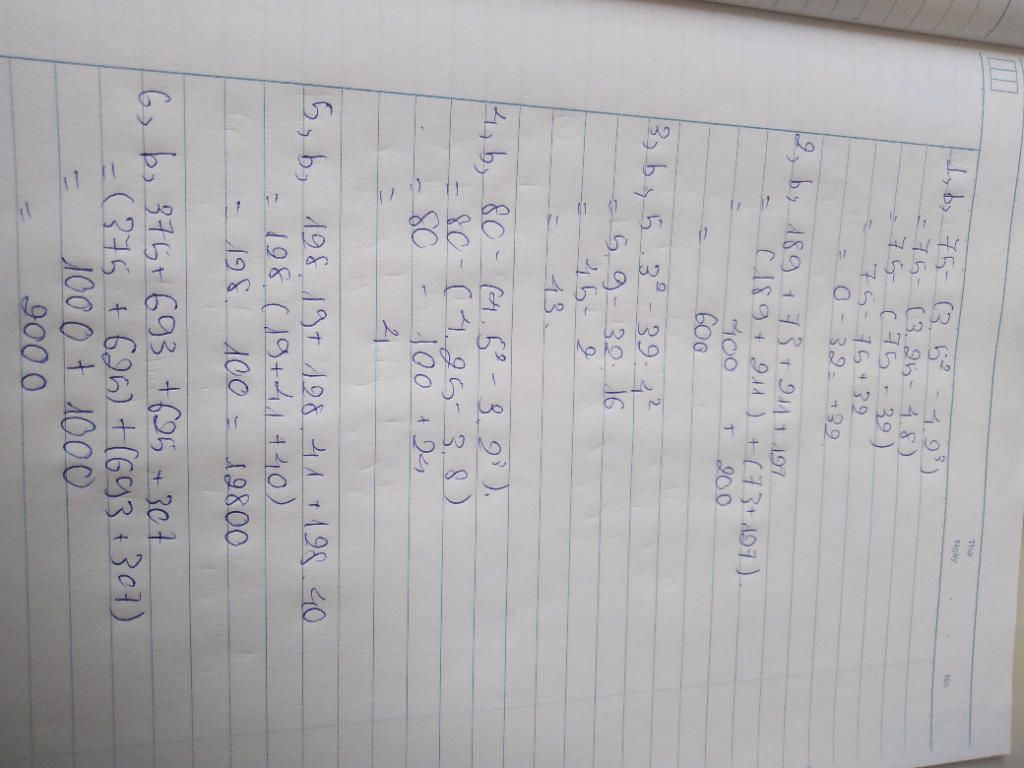 Thứ
Ngày
No.
1, b, 75 - (3.5² - 4.2³)
= 75 - (3.25 - 4.8)
= 75 - (75 - 32)
= 75 - 75 + 32
= 0 - 32 = +32
2, b, 189 + 73 + 211 + 127
= (189 + 211) + (73 + 127).
= 400 + 200
= 600
3, b, 5.3² - 32 : 4²
= 5.9 - 32 : 16
= 45 - 2
= 43.
4, b, 80 - (4.5² - 3.2³).
= 80 - (4.25 - 3.8)
= 80 - 100 + 24
= 4
5, b, 198.19 + 198.41 + 198.40
= 198.(19 + 41 + 40)
= 198.100 = 19800
6, b, 375 + 693 + 625 + 307
= (375 + 625) + (693 + 307)
= 1000 + 1000
= 2000